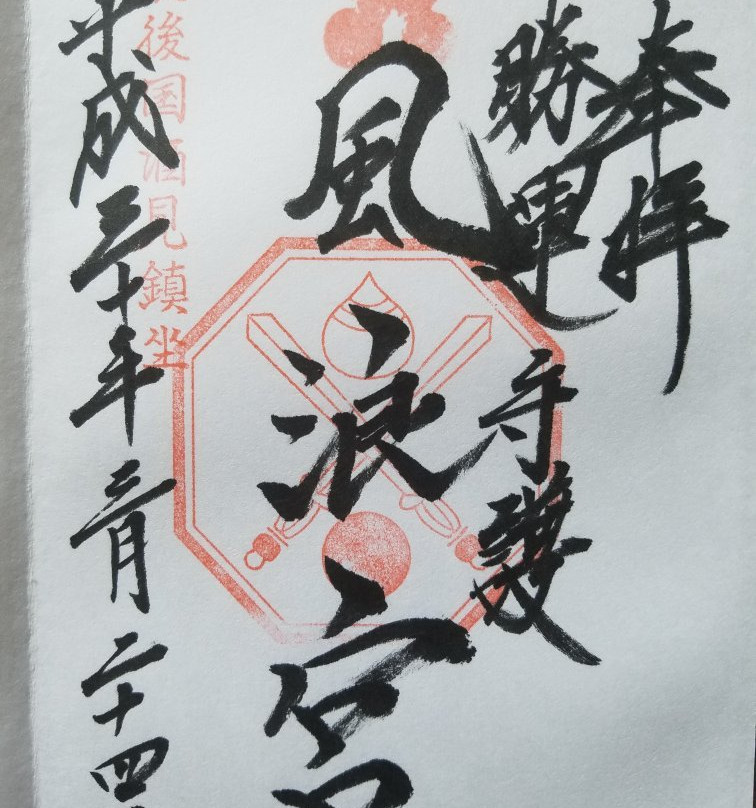 奉拝
勝運守護
風浪宮
後国酒見鎮坐
平成三十年三月二十四